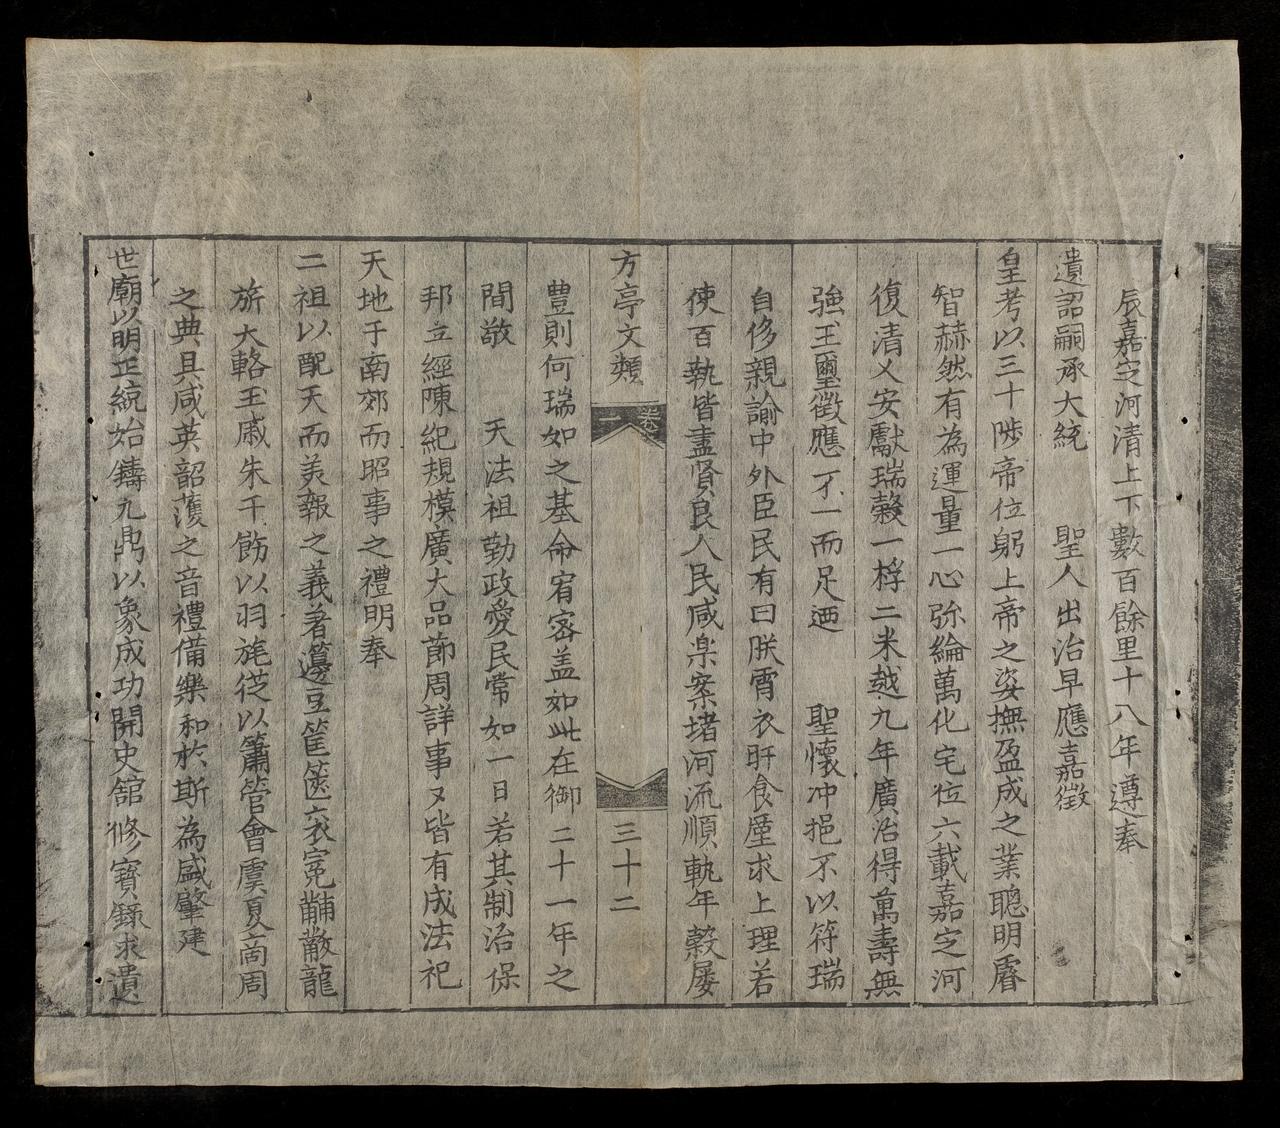 辰嘉定河清上下數百餘里十八年遵奉
遺詔嗣承大統 聖人出治早應嘉徵
皇考以三十陟帝位躬上帝之姿撫盈成之業聰明睿
智赫然有為運量一心弥綸萬化宅位六載嘉定河
復清乂安獻瑞穀一稃二米越九年廣治得萬壽無
強玉璽徵應不一而足迺 聖懷冲挹不以符瑞
自侈親諭中外臣民有曰朕宵衣旰食壓求上理若
使百執皆盡賢良人民咸楽案堵河流順軌年穀屡
方亭文類 卷一 三十二
豊則何瑞如之基命宥密盖如此在御二十一年之
間敬 天法祖勤政愛民常如一日若其制治保
邦立經陳紀規模廣大品節周詳事々皆有成法祀
天地于南郊而昭事之禮明奉
二祖以配天而美報之義著籩豆筐篚衣冕黼黻龍
旂大輅玉戚朱干飾以羽旄從以簫管會虞夏啇周
之典具咸英韶頀之音禮備樂和於斯為盛肇建
世廟以明正統始鑄九鼎以象成功開史舘修寶錄求遺